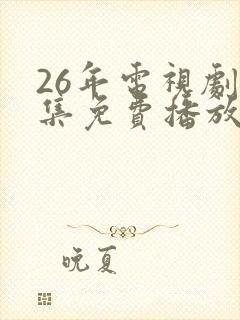 26年電視劇
集免費播放
晚夏